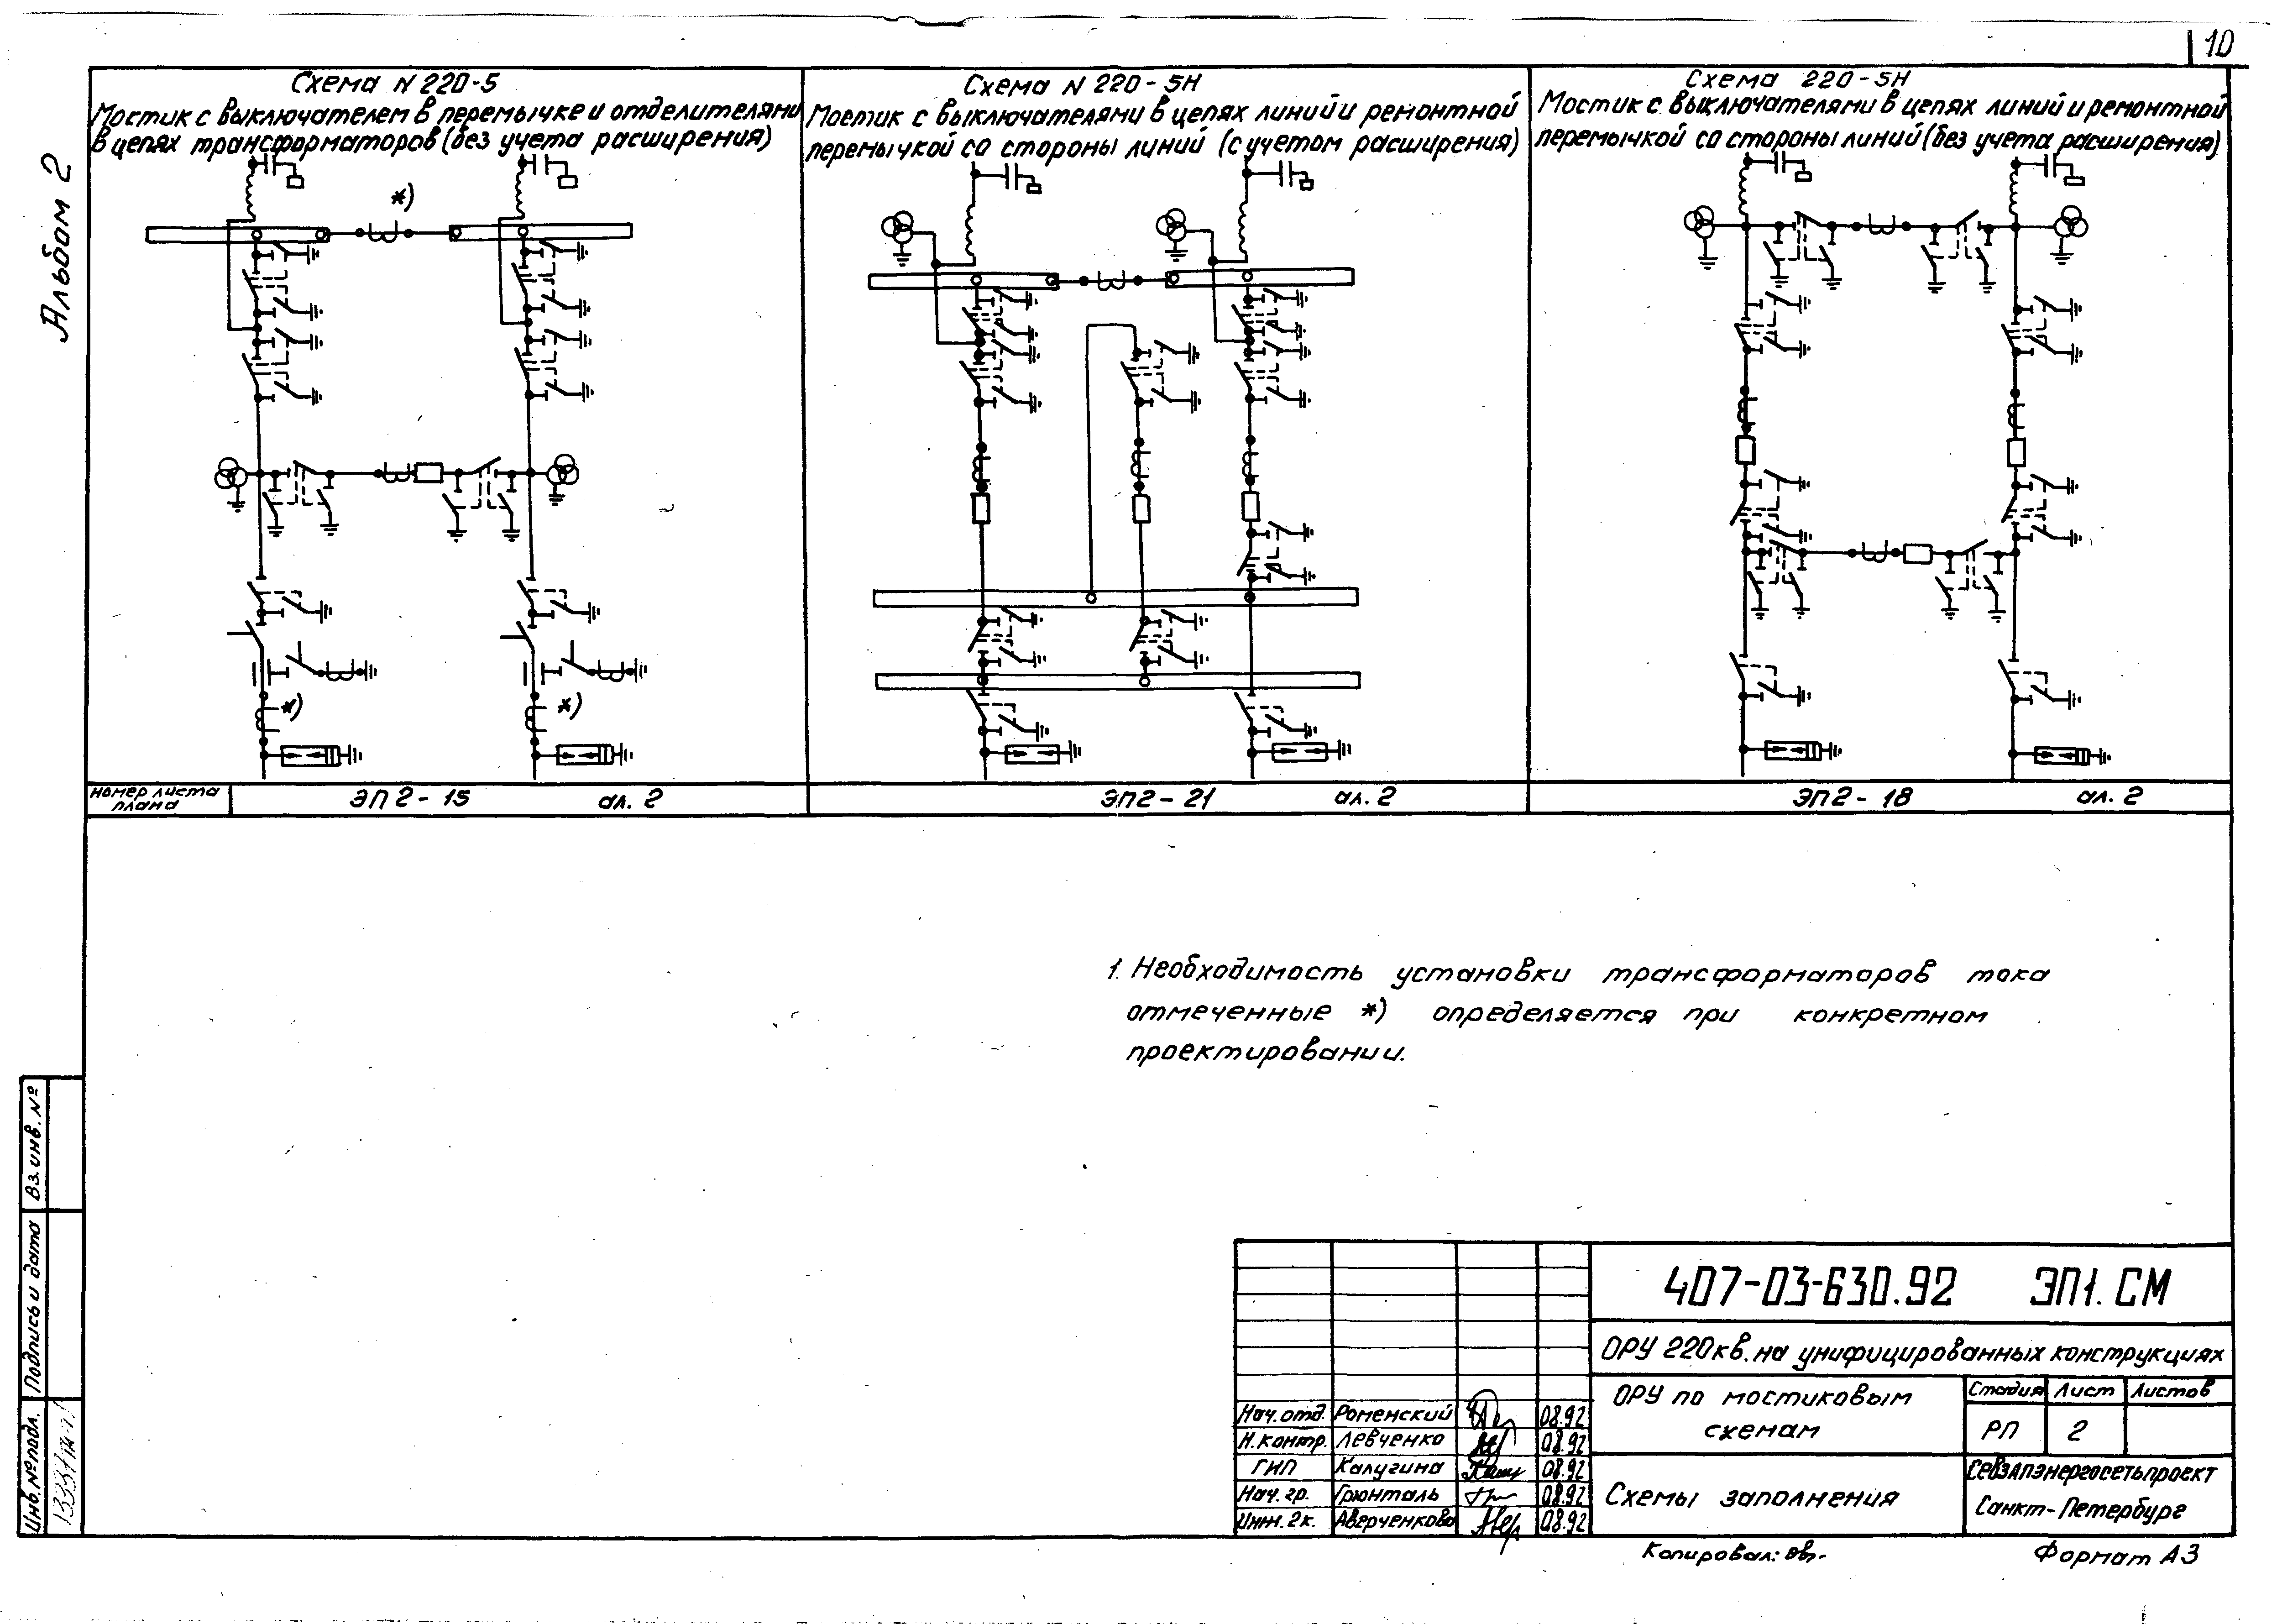 10
Альбом 2
Схема N 220-5
Мостик с выключателем в перемычке и отделителями
в цепях трансформаторов (без учета расширения)
Схема N 220-5Н
Мостик с выключателями в цепях линий и ремонтной
перемычкой со стороны линий (с учетом расширения)
Схема 220-5Н
Мостик с выключателями в цепях линий и ремонтной
перемычкой со стороны линий (без учета расширения)
*)
*)
*)
номер листа
плана
ЭП2-15 ал. 2
ЭП2-21 ал. 2
ЭП2-18 ал. 2
1. Необходимость установки трансформаторов тока
отмеченные *) определяется при конкретном
проектировании.
Вз. инв. №
Подпись и дата
Инв. № подл.
407-03-630.92 ЭП1. СМ
ОРУ 220кв. на унифицированных конструкциях
ОРУ по мостиковым
схемам
Стадия Лист Листов
РП 2
Схемы заполнения
Севзапэнергосетьпроект
Санкт-Петербург
Нач. отд. Роменский 08.92
Н. контр. Левченко 08.92
ГИП Калугина 08.92
Нач. гр. Грюнталь 08.92
Инж. 2к. Аверченкова 08.92
Копировал:
Формат А3